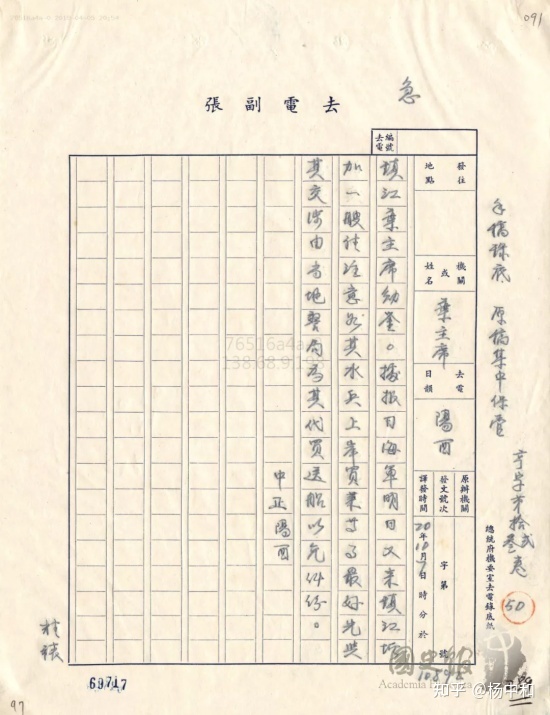 091
急
去電副張
手稿錄底 原稿集中保管
總統府機要室去電錄底紙
150
去電編號
發往地點
機關或姓名
葉主席
去電日韻
陽酉
原辦機關
發文號次
字第
號
譯發時間
20年10月7日 時 分於
鎮江葉主席勛鑒。據報日海軍明日又來鎮江增
加一艘請注意如其水兵上岸買菜等事最好先與
其交涉由當地警局為其代買送船以免糾紛。
中正陽酉
69717
97
76516a4a
138.68.9.193
國史館
知乎 @杨中和